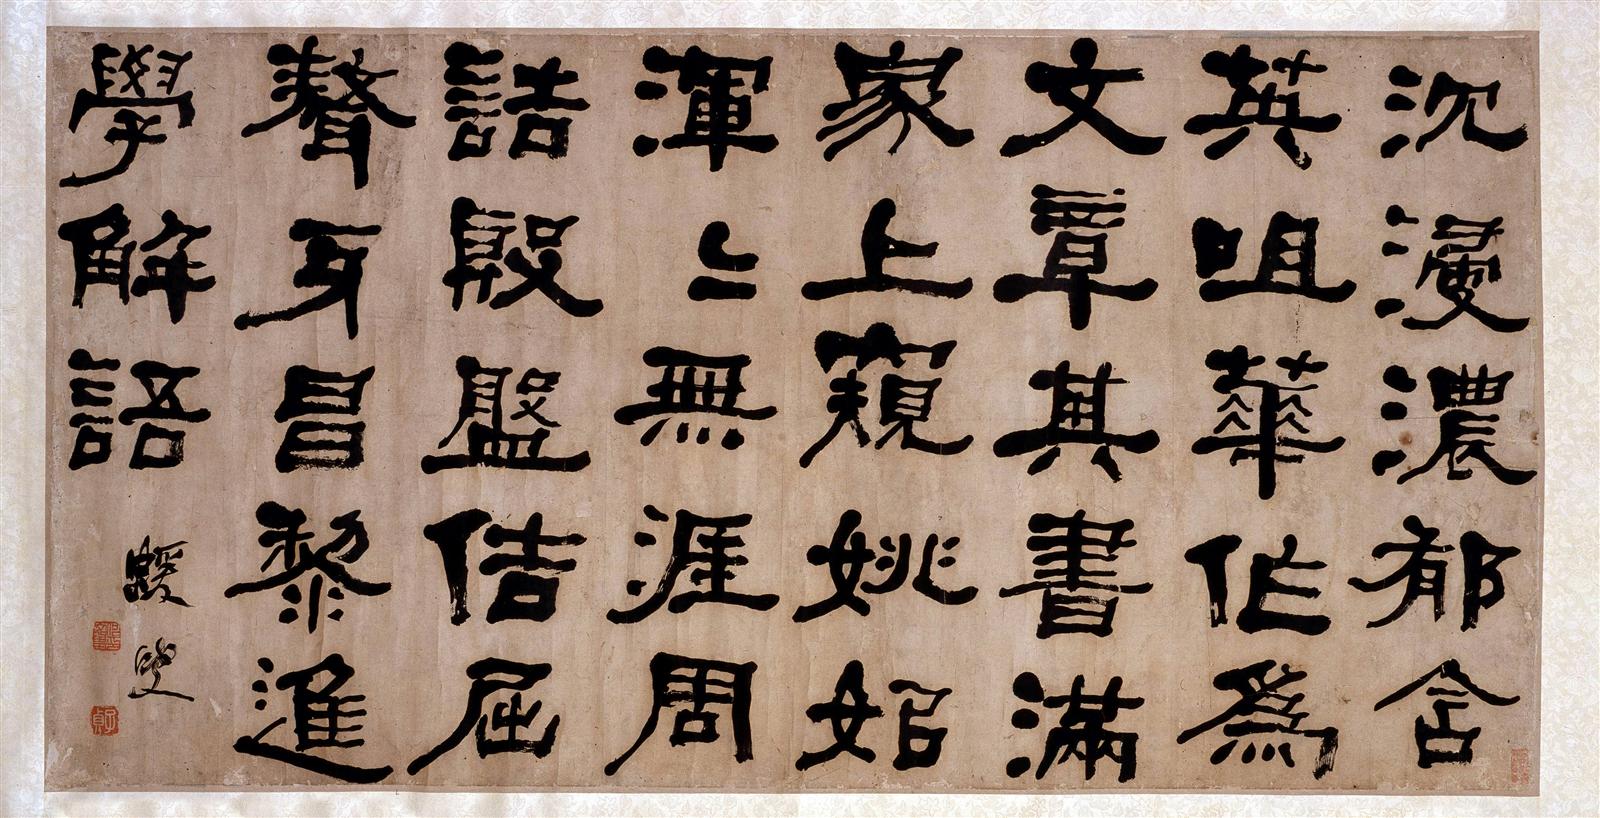 沈浸濃郁含
英咀華作為
文章其書滿
家上窺姚姒
渾〻無涯周
誥殷盤佶屈
聱牙昌黎進
學解語
蝯叟
子貞